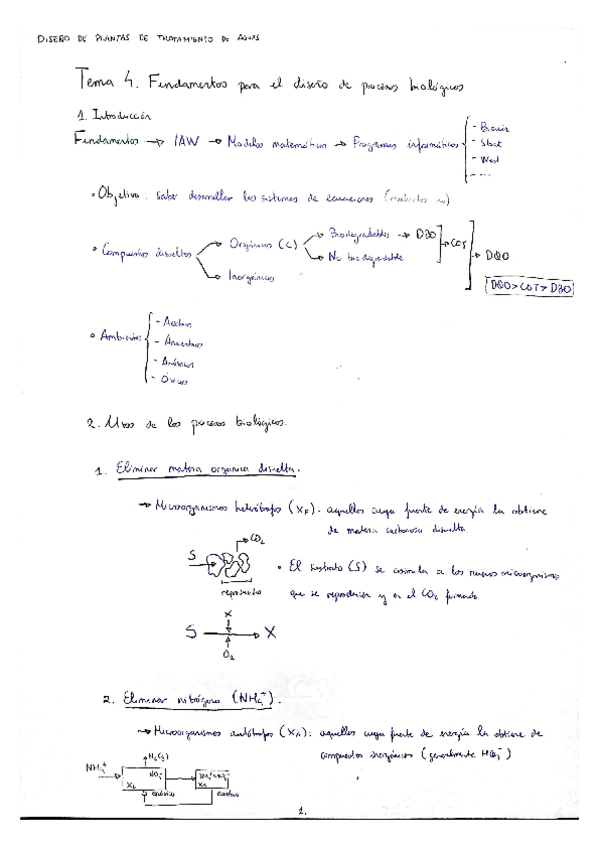 DISEÑO DE PLANTAS DE TRATAMIENTO DE AGUAS
Tema 4. Fundamentos para el diseño de procesos biológicos
1. Introducción
Fundamentos → IAW → Modelos matemáticos → Programas informáticos
- Stoat
- West
- ...
• Objetivo: Saber desarrollar los sistemas de ecuaciones
• Compuestos disueltos
Orgánicos (C)
Biodegradables → DBO
No biodegradable
Inorgánicos
COT
→ DQO
DQO > COT > DBO
• Ambientes
- Aerobios
- Anaerobios
- Anóxicos
- Óxicos
2. Usos de los procesos biológicos.
1. Eliminar materia orgánica disuelta.
→ Microorganismos heterótrofos (XF): aquellos cuya fuente de energía la obtiene
de materia carbonosa disuelta.
CO2
S
• El sustrato (S) se asimila a los nuevos microorganismos
reproducción
que se reproducían y en el CO2 formado.
X
S → X
O2
2. Eliminar nitrógeno (NH4+).
→ Microorganismos autótrofos (XA): aquellos cuya fuente de energía la obtiene de
compuestos inorgánicos (generalmente HCO3-)
N2(g)
NH4+
NO3-
anóxico
aerobio
1.